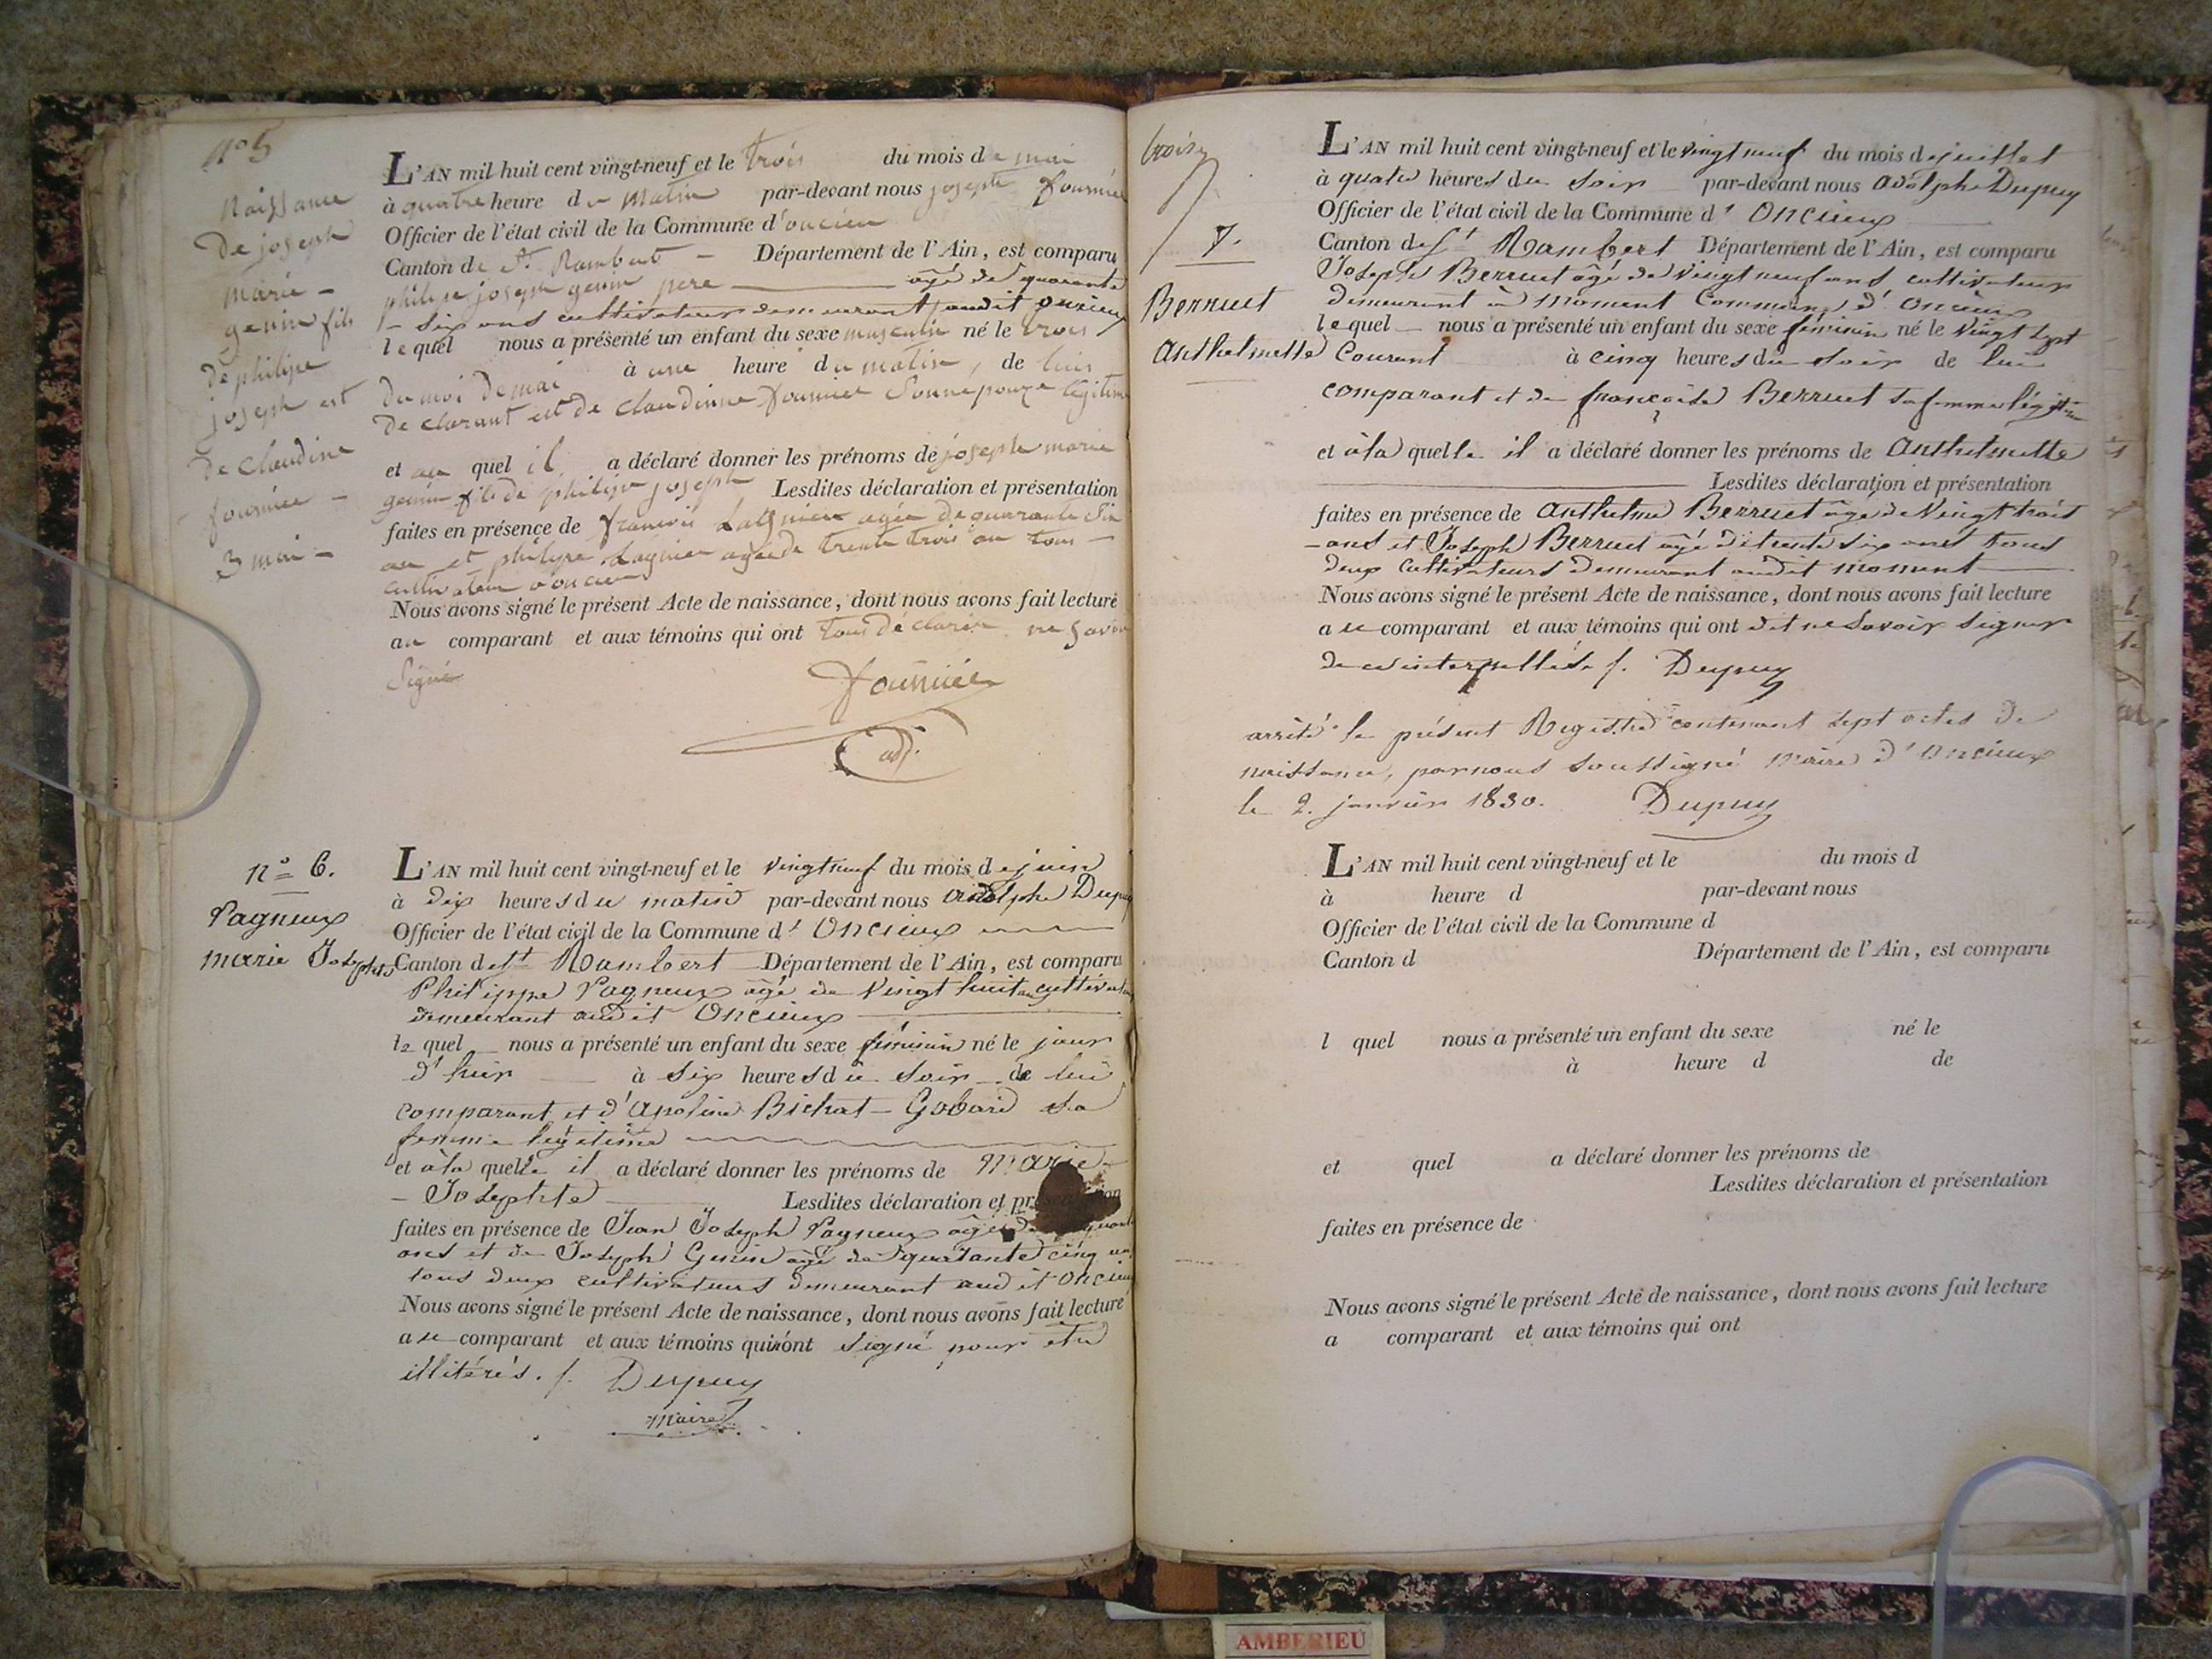 N° 5
Naissance
de joseph
marie -
genin fils
de philipe
joseph est
de Claudine
fournier -
3 mai -
L'AN mil huit cent vingt-neuf et le trois du mois de mai
à quatre heure du matin par-devant nous joseph fournier
Officier de l'état civil de la Commune d'oncieu
Canton de St. Rambert - Département de l'Ain, est comparu
philipe joseph genin pere âgé de quarante
- six ans cultivateur demeurant audit oncieu
lequel nous a présenté un enfant du sexe masculin né le trois
du moi de mai à une heure du matin, de lui
de clarant est de claudinne fournier sonnepouze légitime
et au quel il a déclaré donner les prénoms de joseph marie
genin fils de philipe joseph Lesdites déclaration et présentation
faites en présence de francois Lagnieu agée de quarante six
an et philipe Lagnieu agée de trente trois an tous -
cultivateur a oncieu
Nous avons signé le présent Acte de naissance, dont nous avons fait lecture
au comparant et aux témoins qui ont tous déclaré ne savoir
signé
fournier
adj.
n° 6.
Vagneux
marie Josephte
L'AN mil huit cent vingt-neuf et le vingt neuf du mois de juin
à dix heures du matin par-devant nous adolphe Dupuy
Officier de l'état civil de la Commune d' Oncieux
Canton de St Rambert Département de l'Ain, est comparu
Philippe Vagneux âgé de vingt huit an cultivateur
demeurant audit Oncieux
lequel nous a présenté un enfant du sexe féminin né le jour
d'hier à six heures du soir de lui
comparant et d'apoline Bichat - Gobard sa
femme légitime
et à la quelle il a déclaré donner les prénoms de Marie -
- Josephte Lesdites déclaration et présentation
faites en présence de Jean Joseph Vagneux âgé de
ans et de Joseph Genin âgé de quarante cinq ans
tous deux cultivateurs demeurant audit Oncieux
Nous avons signé le présent Acte de naissance, dont nous avons fait lecture
au comparant et aux témoins qui n'ont signé pour être
illitérés. /. Dupuy
maire
7.
Berruet
Anthelmette
L'AN mil huit cent vingt-neuf et le vingt neuf du mois de juillet
à quatre heures du soir par-devant nous adolphe Dupuy
Officier de l'état civil de la Commune d' Oncieux
Canton de St Rambert Département de l'Ain, est comparu
Joseph Berruet âgé de vingt neuf ans cultivateur
demeurant à moment Commune d'Oncieux
lequel nous a présenté un enfant du sexe féminin né le vingt sept
Courant à cinq heures du soir de lui
comparant et de françoise Berruet sa femme légitime
et à la quelle il a déclaré donner les prénoms de Anthelmette
Lesdites déclaration et présentation
faites en présence de Anthelme Berruet âgé de vingt trois
- ans et Joseph Berruet âgé de trente six ans tous
deux cultivateurs demeurant audit moment
Nous avons signé le présent Acte de naissance, dont nous avons fait lecture
au comparant et aux témoins qui ont dit ne savoir signer
de ce interpellés /. Dupuy
arrêté le présent Registre contenant sept actes de
naissance, par nous soussigné Maire d'Oncieux
le 2. janvier 1830. Dupuy
L'AN mil huit cent vingt-neuf et le du mois d
à heure d par-devant nous
Officier de l'état civil de la Commune d
Canton d Département de l'Ain, est comparu
l quel nous a présenté un enfant du sexe né le
à heure d de
et quel a déclaré donner les prénoms de
Lesdites déclaration et présentation
faites en présence de
Nous avons signé le présent Acte de naissance, dont nous avons fait lecture
a comparant et aux témoins qui ont
AMBERIEU